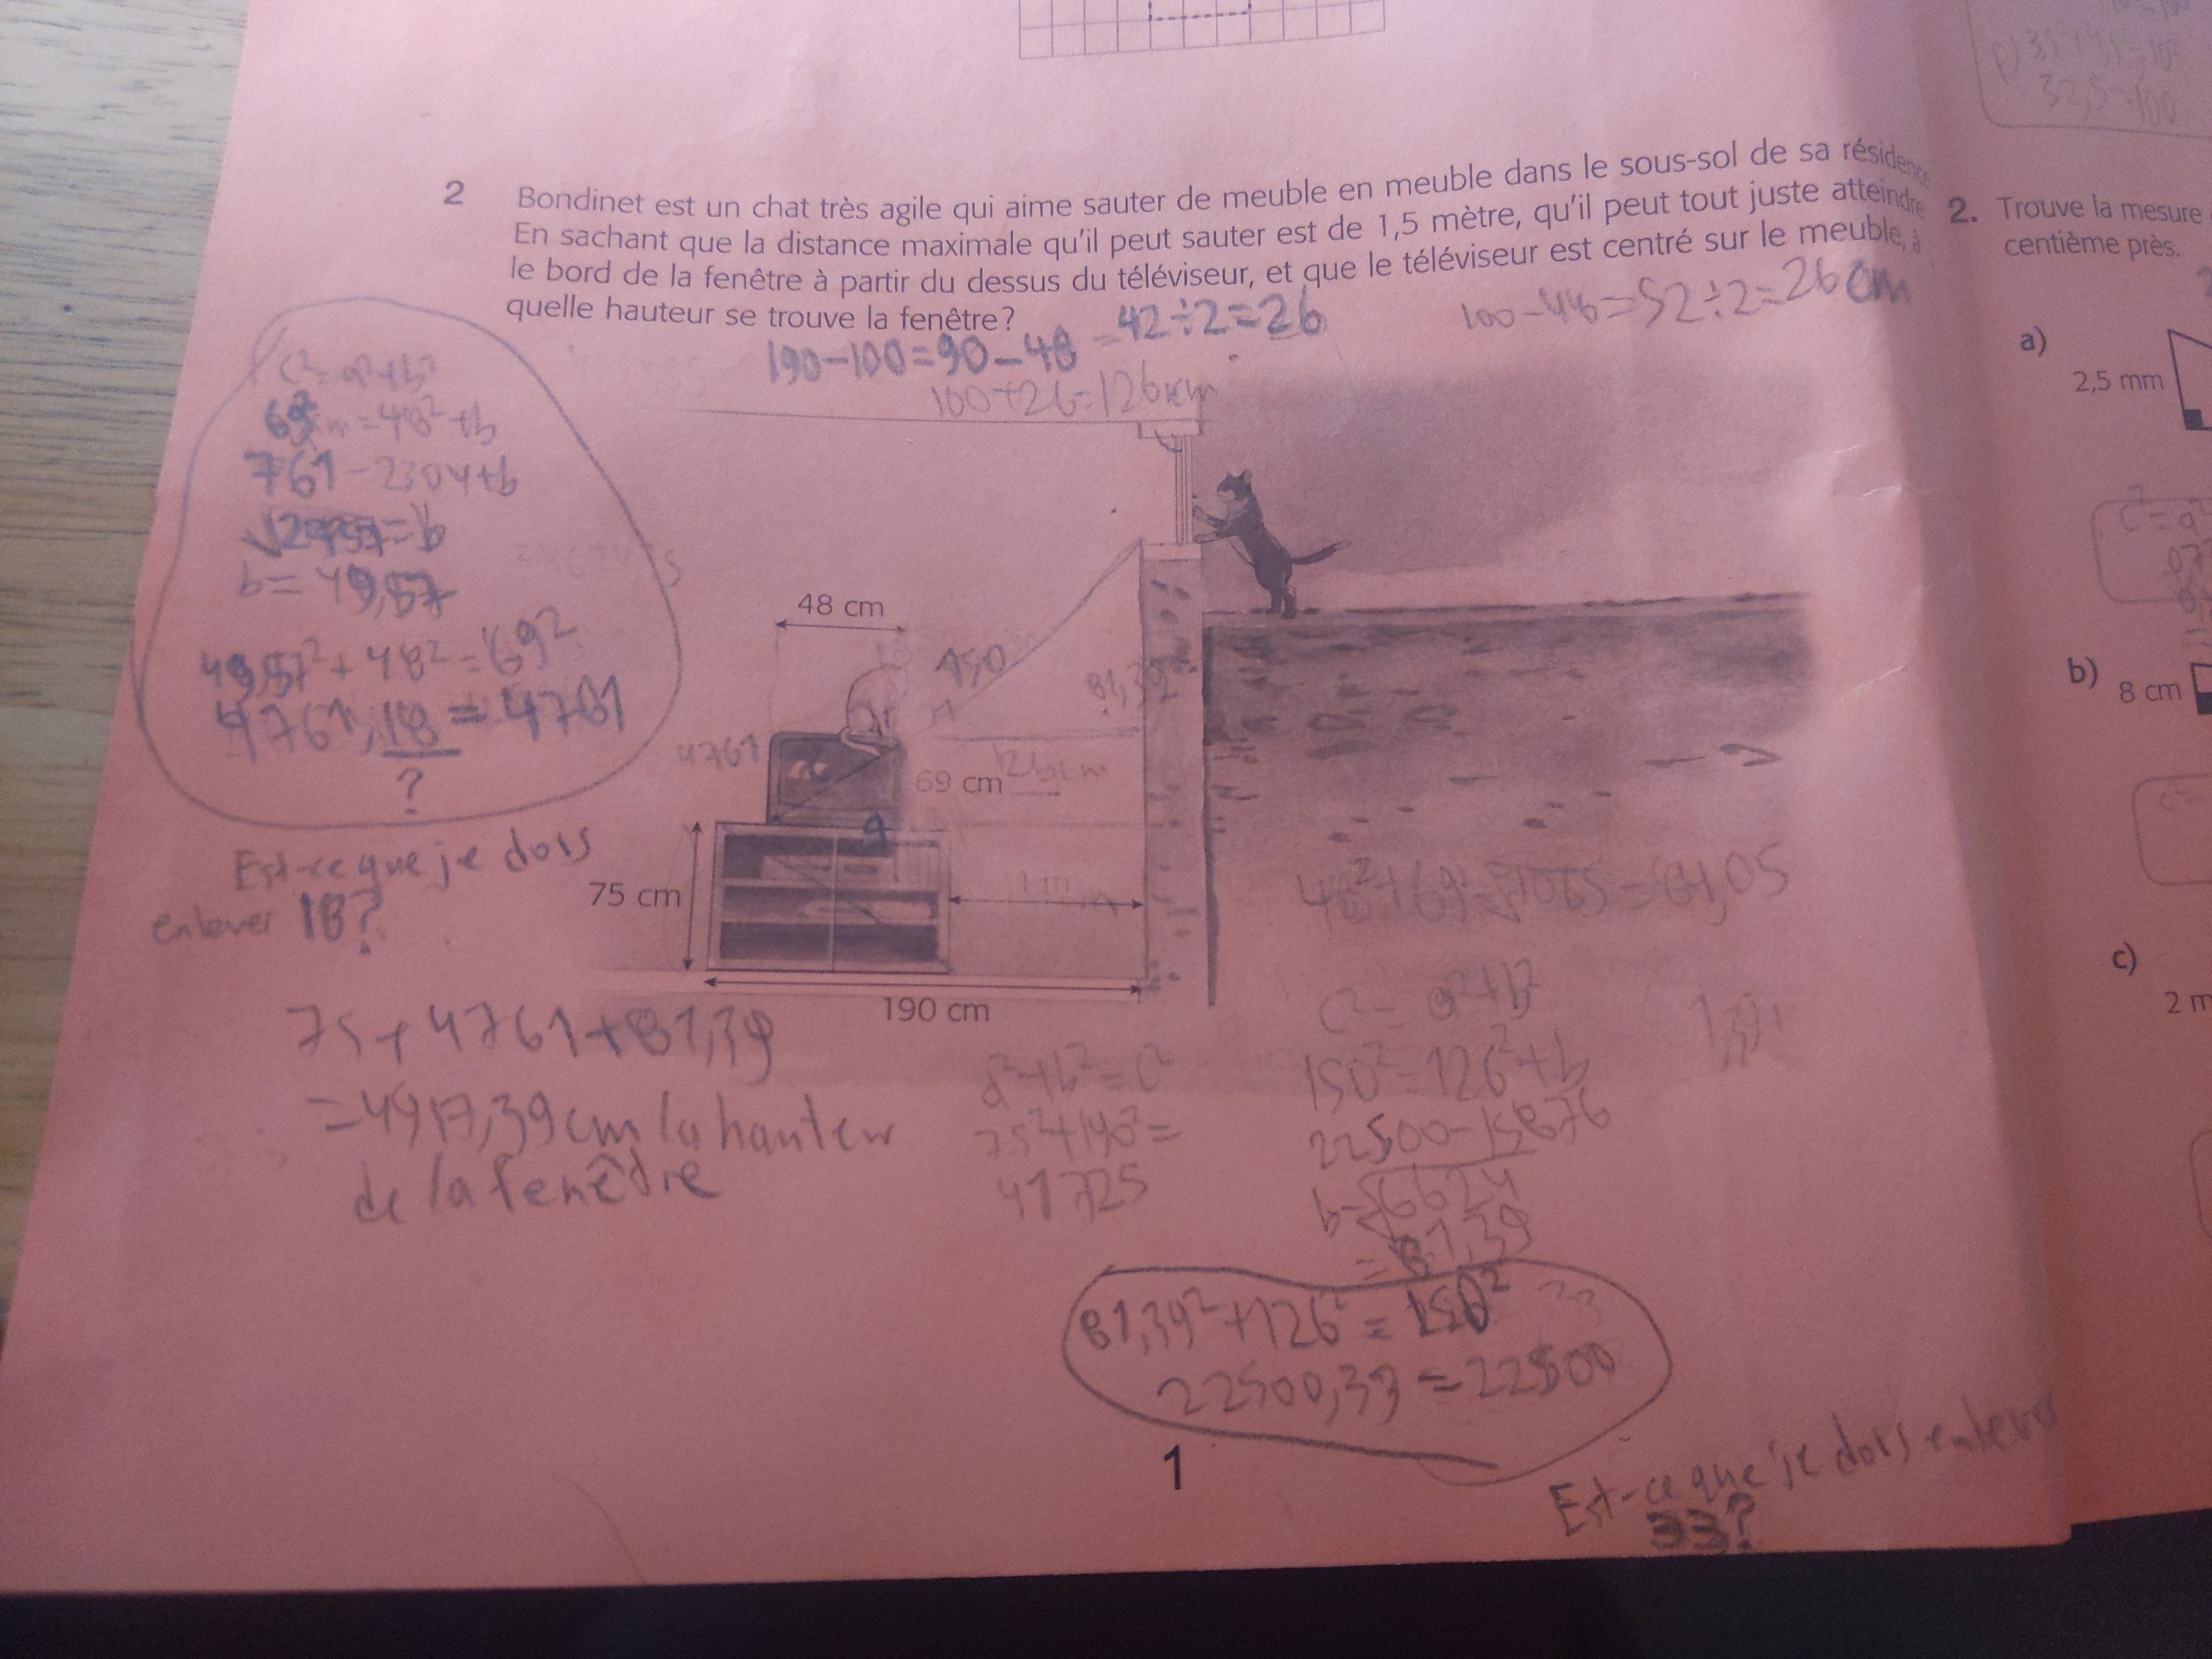 2 Bondinet est un chat très agile qui aime sauter de meuble en meuble dans le sous-sol de sa résidence
En sachant que la distance maximale qu'il peut sauter est de 1,5 mètre, qu'il peut tout juste atteindre
le bord de la fenêtre à partir du dessus du téléviseur, et que le téléviseur est centré sur le meuble, à
quelle hauteur se trouve la fenêtre?
190-100=90-48 = 42÷2=26
100-48=52÷2=26 cm
100+26=126cm
c²=a²+b²
69² =48²+b
761-2304+b
b= 49,57
49,57²+48²=69²
4761,18=4761
?
Est-ce que je dois
enlever 18?
48 cm
150
81,39
4761
69 cm
126cm
75 cm
1 m
190 cm
75+4761+81,39
=4917,39cm la hauteur
de la fenêdre
a²+b²=c²
75²+190²=
41725
c²=a²+b²
150²=126²+b
22500-15876
b=√6624
=81,39
81,39²+126²=150²
22500,33=22500
Est-ce que je dois enlever
33?
1
2. Trouve la mesure
centième près.
a)
2,5 mm
b)
8 cm
c)
2 m